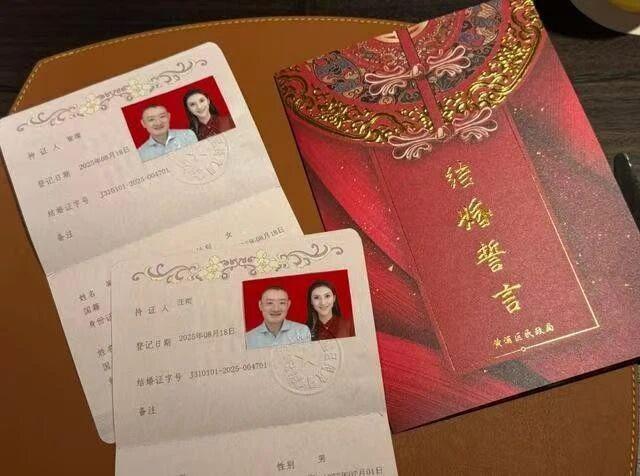 持证人
登记日期 2025年08月18日
结婚证字号 J310101-2025-004701
备注
女
08月18日
姓名
国籍
身份证
姓名
国
持证人 汪
登记日期 2025年08月18日
结婚证字号 J310101-2025-004701
备注
性别 男
07月01日
结婚誓言
黄浦区民政局